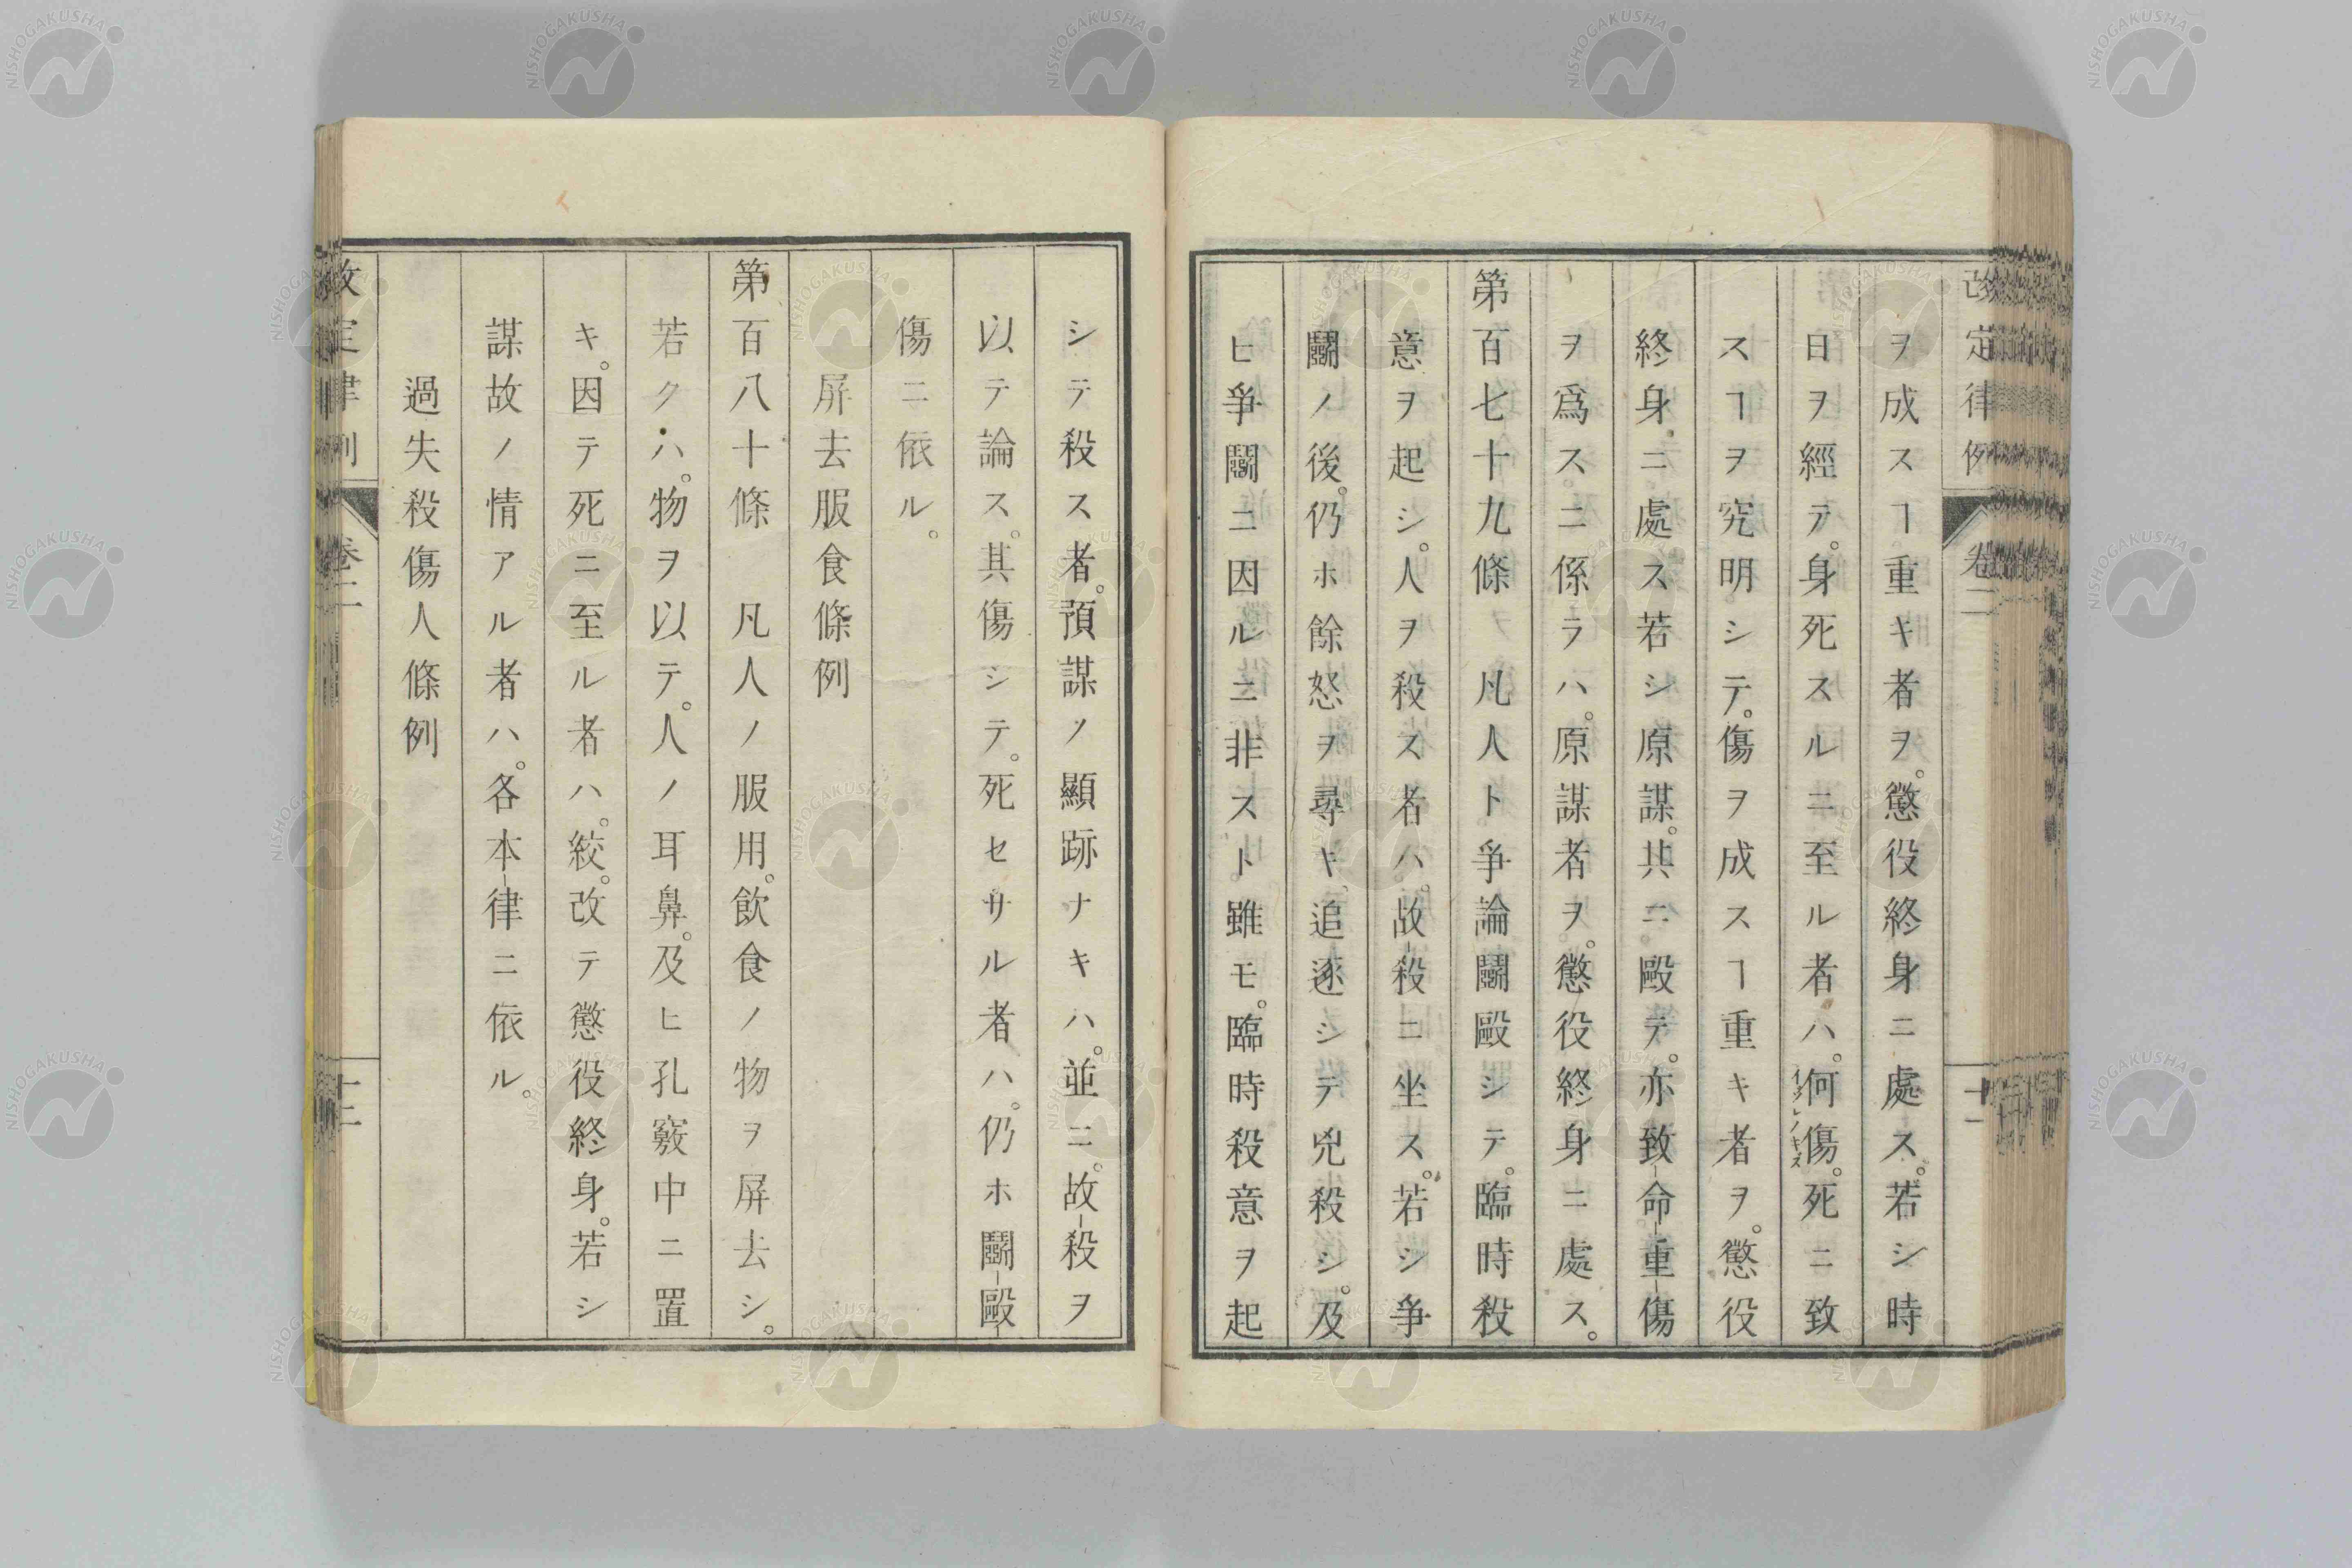 改定律例 卷二 十一
ヲ成スヿ重キ者ヲ。懲役終身ニ處ス。若シ時
日ヲ經テ。身死スルニ至ル者ハ。何傷。死ニ致
イヅレノキズ
スヿヲ究明シテ。傷ヲ成スヿ重キ者ヲ。懲役
終身ニ處ス若シ原謀。共ニ毆テ。亦致命重傷
ヲ爲スニ係ラハ。原謀者ヲ。懲役終身ニ處ス。
第百七十九條 凡人ト爭論鬪毆シテ。臨時殺
意ヲ起シ。人ヲ殺ス者ハ。故殺ニ坐ス。若シ爭
鬪ノ後。仍ホ餘怒ヲ尋キ、追逐シテ兇殺シ。及
ヒ爭鬪ニ因ルニ非スト雖モ。臨時殺意ヲ起
シテ殺ス者。預謀ノ顯跡ナキハ。並ニ。故殺ヲ
以テ論ス。其傷シテ。死セサル者ハ。仍ホ鬪毆
傷ニ依ル。
屏去服食條例
第百八十條 凡人ノ服用。飮食ノ物ヲ屏去シ。
若クハ。物ヲ以テ。人ノ耳鼻。及ヒ孔竅中ニ置
キ。因テ死ニ至ル者ハ。絞。改テ懲役終身。若シ
謀故ノ情アル者ハ。各本律ニ依ル。
過失殺傷人條例
改定律例 卷二 十二
NISHOGAKUSHA